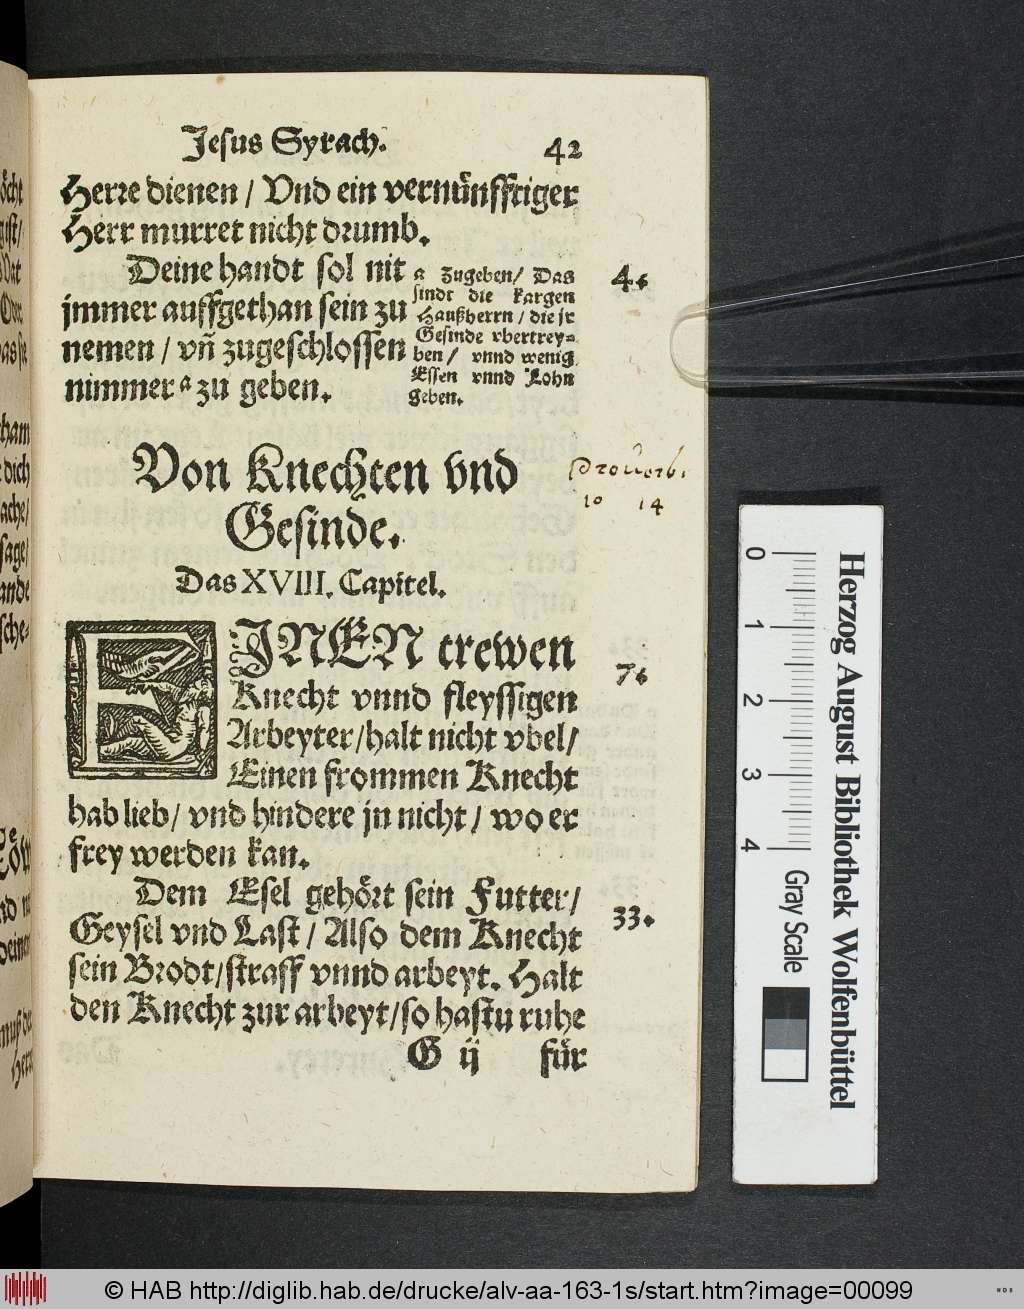 Jesus Syrach. 42
Herre dienen / Vnd ein vernünfftiger
Herr murret nicht drumb.
Deine handt sol nit
jmmer auffgethan sein zu
nemen / vñ zugeschlossen
nimmer a zu geben.
a zugeben / Das
sindt die kargen
Haußherrn / die jr
Gesinde vbertrey=
ben / vnnd wenig
Essen vnnd Lohn
geben.
4.
Von Knechten vnd
Gesinde.
Prouerb.
10 14
Das XVIII. Capitel.
EJNEN trewen
Knecht vnnd fleyssigen
7.
Arbeyter / halt nicht vbel /
Einen frommen Knecht
hab lieb / vnd hindere jn nicht / wo er
frey werden kan.
Dem Esel gehört sein Futter /
33.
Geysel vnd Last / Also dem Knecht
sein Brodt / straff vnnd arbeyt. Halt
den Knecht zur arbeyt / so hastu ruhe
G ij für
0 1 2 3 4
Gray Scale
Herzog August Bibliothek Wolfenbüttel
© HAB http://diglib.hab.de/drucke/alv-aa-163-1s/start.htm?image=00099